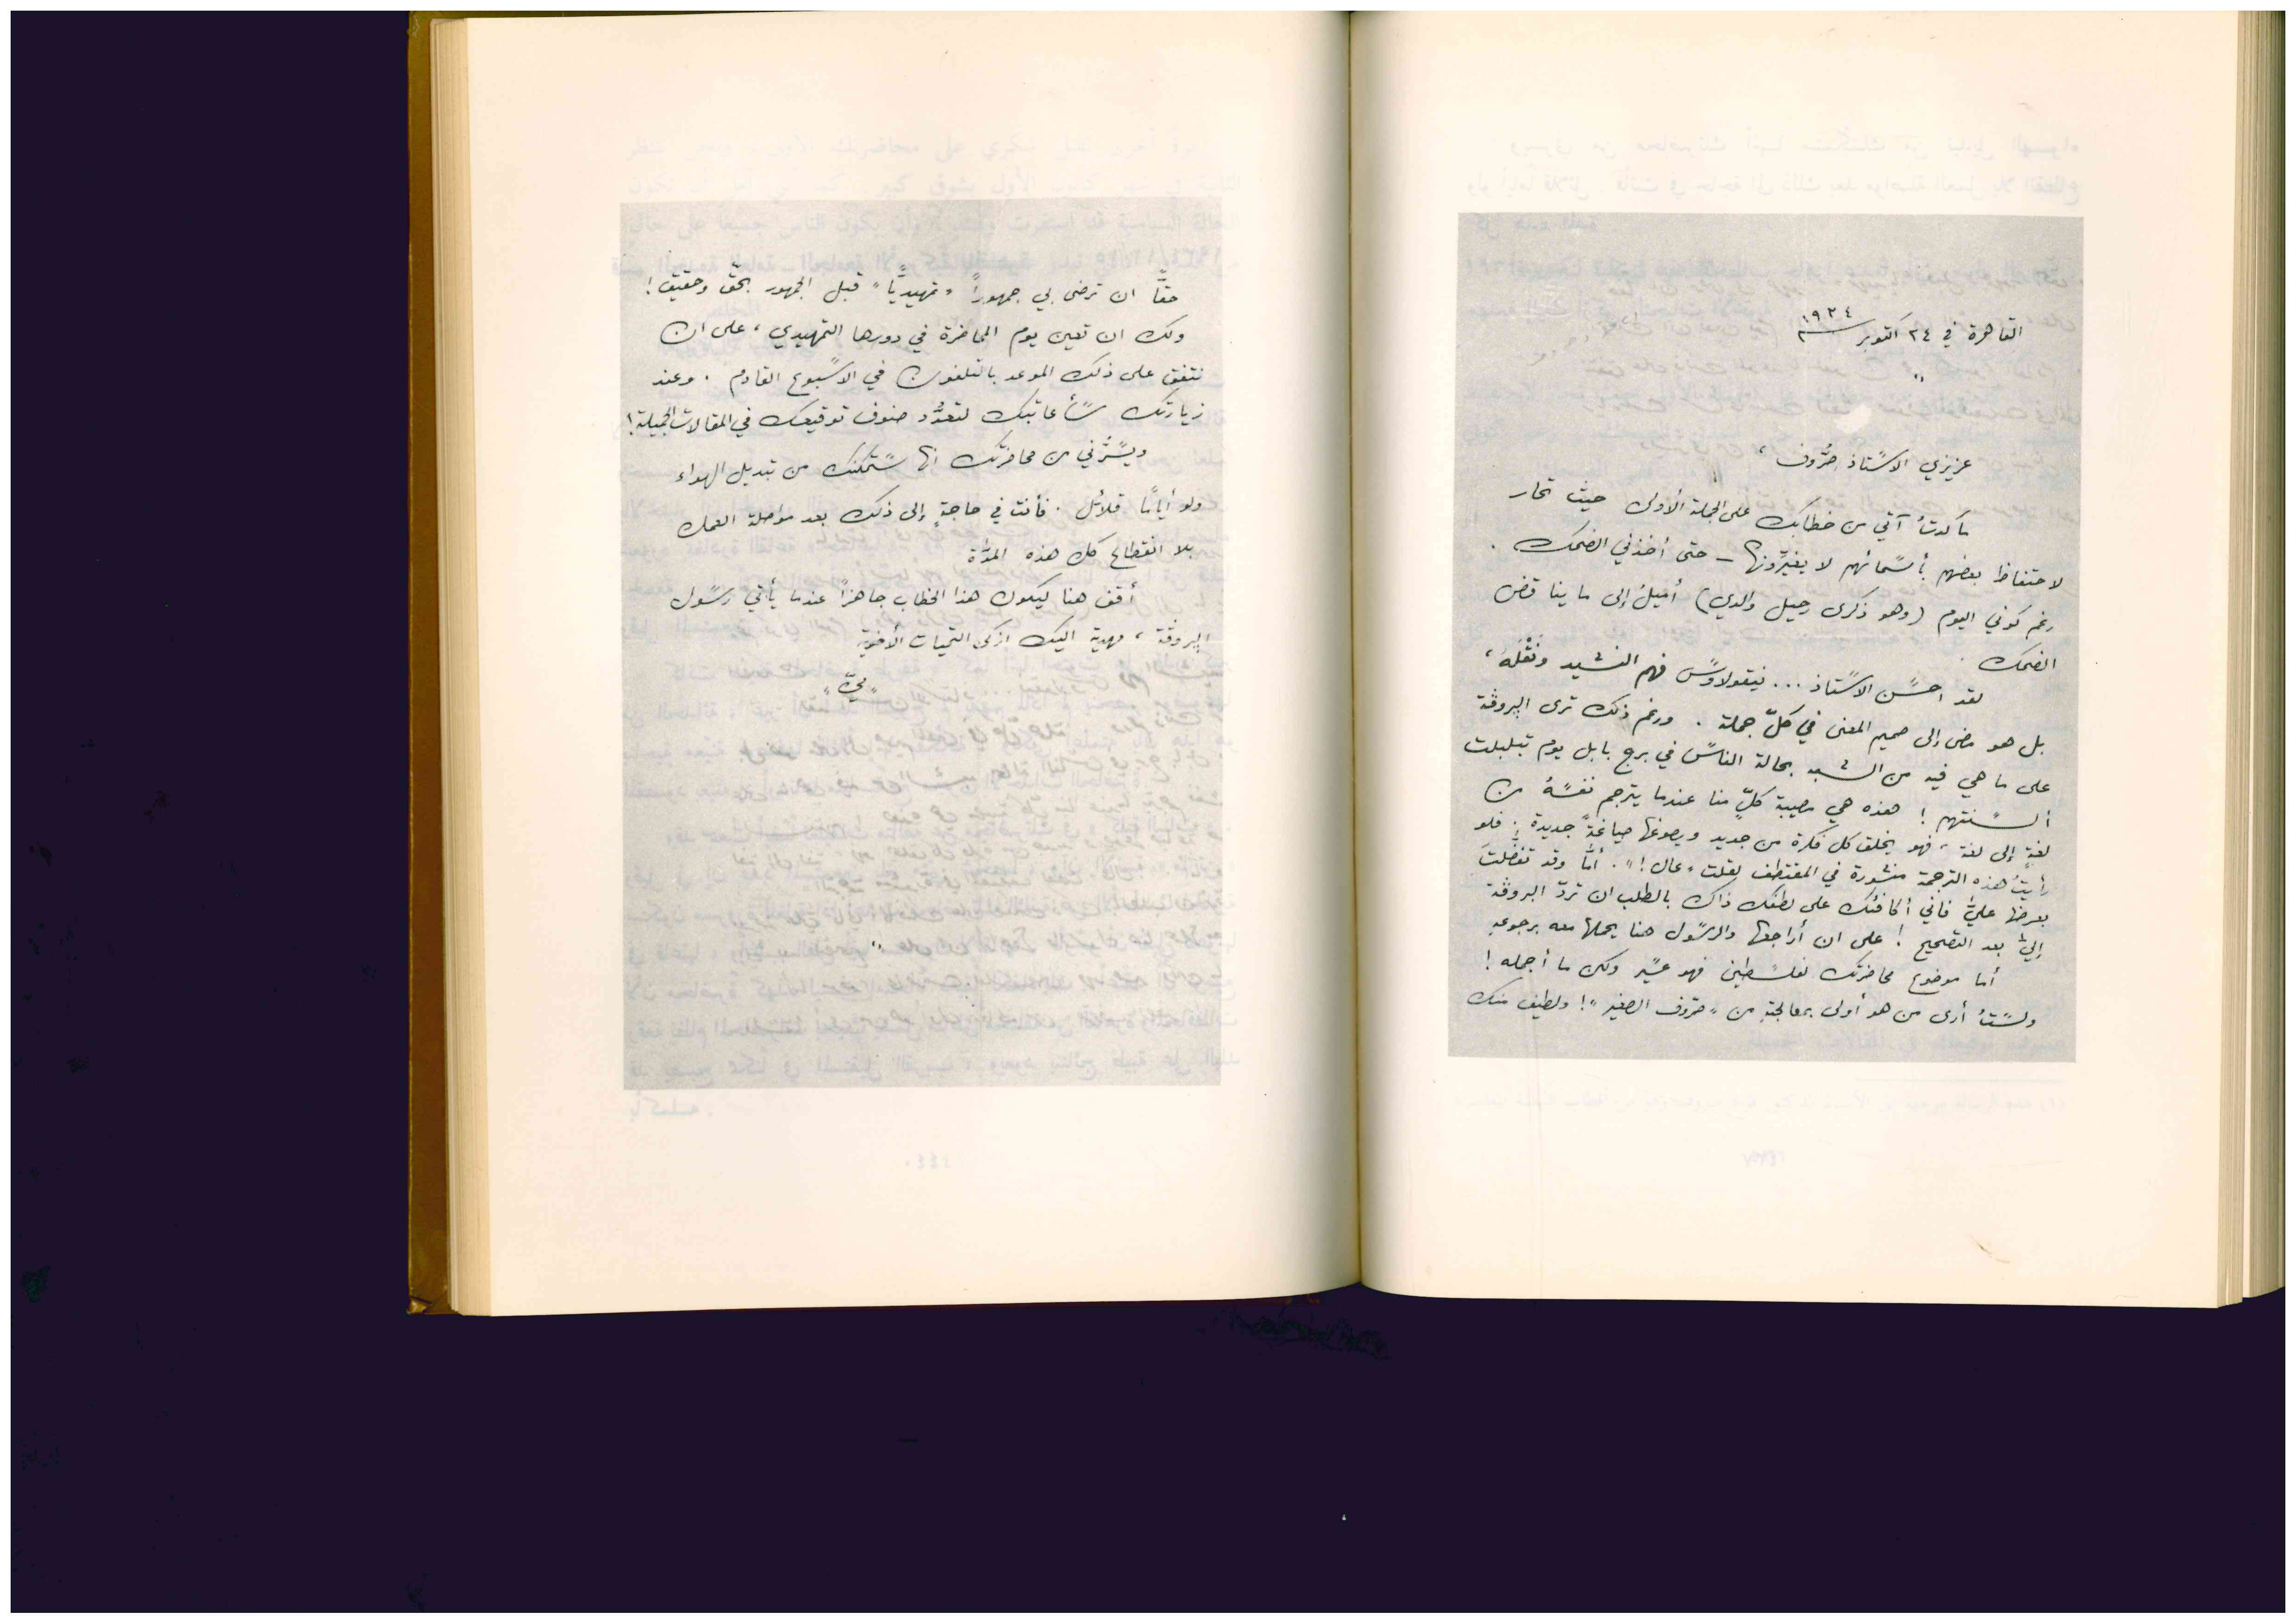 القاهرة في ٢٤ اكتوبر ١٩٢٤
عزيزي الاستاذ صرُّوف ،
ما كدتُ آتي من خطابك على الجملة الأولى حيث تحار
لاحتفاظ بعضهم بأسمائهم لا يغيّرونها – حتى أخذني الضحك .
رغم كوني اليوم (وهو ذكرى رحيل والدي) أميلُ إلى ما يناقض
الضحك .
لقد احسن الاستاذ ... نيقولاوس فهم النشيد ونَقْلَهُ ،
بل هو مضى إلى صميم المعنى في كلّ جملة . ورغم ذلك ترى البروڤة
على ما هي فيه من الشبه بحالة الناس في برج بابل يوم تبلبلت
ألسنتهم ! هذه هي مصيبة كلّ منا عندما يترجم نفسهُ من
لغةٍ إلى لغة ، فهو يخلق كل فكرة من جديد ويصوغها صياغةً جديدة . فلو
رأيتُ هذه الترجمة منشورة في المقتطف لقلت "عال !" . أمَّا وقد تفضَّلتَ
بعرضها عليَّ فاني أكافئك على لطفك ذاك بالطلب ان تردّ البروڤة
إليَّ بعد التصحيح ! على ان أراجعها والرسول هنا يحملها معه برجوعه
أما موضوع محاضرتك لفلسطين فهو عسير ولكن ما أجمله !
ولستُ أرى من هو أولى بمعالجته من "صرّوف الصغير" ! ولطيف منك
حقًّا ان ترضى بي جمهوراً "تمهيديًّا" قبل الجمهور بحقّ وحقيق !
ولك ان تعين يوم المحاضرة في دورها التمهيدي ، على ان
نتفق على ذلك الموعد بالتلفون في الاسبوع القادم . وعند
زيارتك سأعاتبك لتعدُّد صنوف توقيعك في المقالات الجميلة !
ويسرُّني من محاضرتك انها ستمكنك من تبديل الهواء
ولو أيامًا قلائل . فأنت في حاجةٍ إلى ذلك بعد مواصلة العمل
بلا انقطاع كل هذه المدَّة
أقف هنا ليكون هذا الخطاب جاهزاً عندما يأتي رسول
البروڤة ، مهدية اليك ازكى التحيات الأخوية
"ميّ"